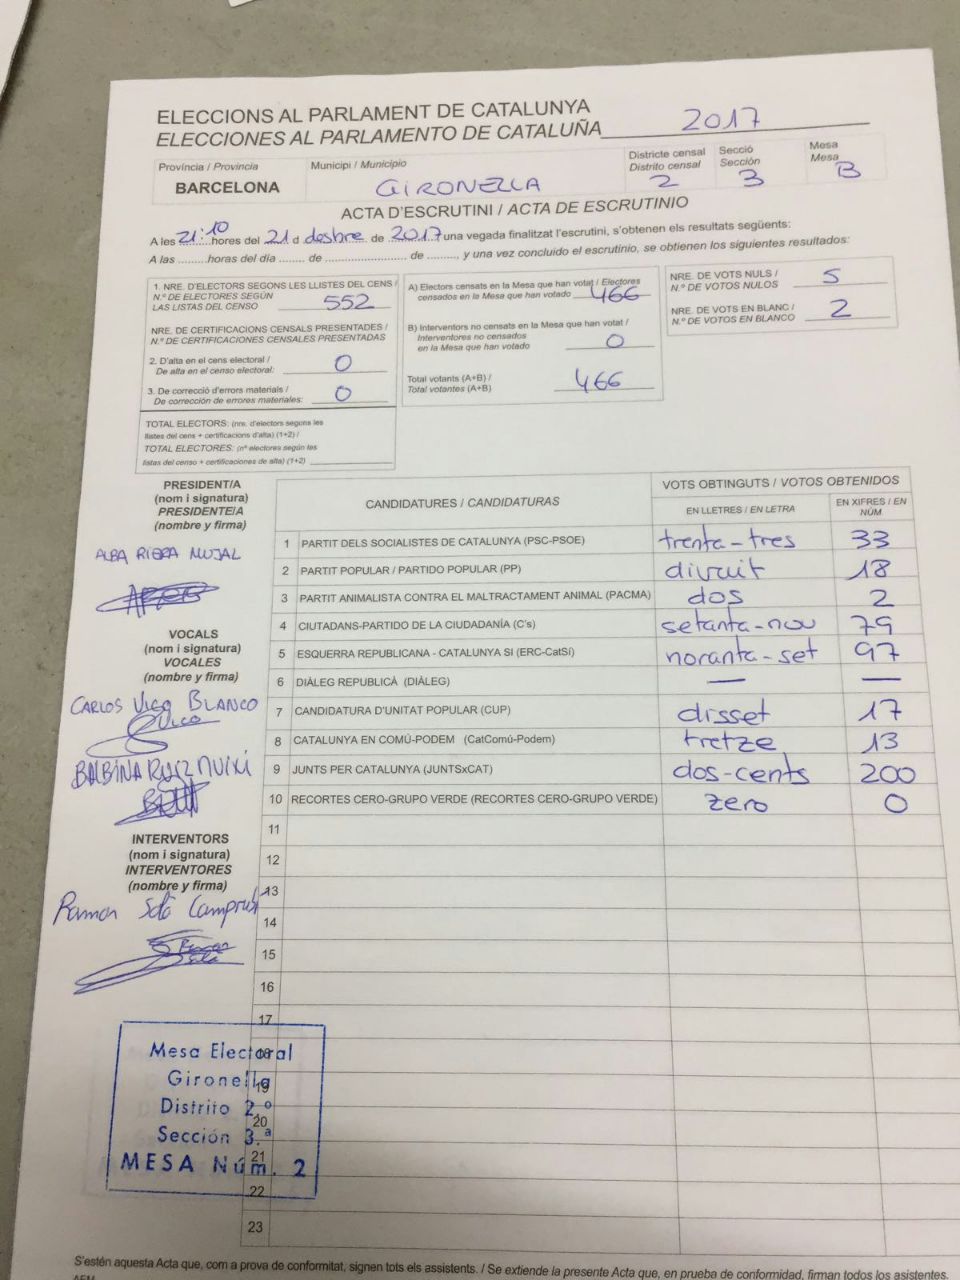 ELECCIONS AL PARLAMENT DE CATALUNYA
ELECCIONES AL PARLAMENTO DE CATALUÑA 2017
Província / Provincia
BARCELONA
Municipi / Municipio
GIRONELLA
Districte censal
Distrito censal
2
Secció
Sección
3
Mesa
Mesa
B
ACTA D'ESCRUTINI / ACTA DE ESCRUTINIO
A les 21:10 hores del 21 d desbre de 2017 una vegada finalitzat l'escrutini, s'obtenen els resultats següents:
A las ......... horas del día ....... de ........................ de ........, y una vez concluido el escrutinio, se obtienen los siguientes resultados:
1. NRE. D'ELECTORS SEGONS LES LLISTES DEL CENS /
N.º DE ELECTORES SEGÚN
LAS LISTAS DEL CENSO 552
NRE. DE CERTIFICACIONS CENSALS PRESENTADES /
N.º DE CERTIFICACIONES CENSALES PRESENTADAS
2. D'alta en el cens electoral /
De alta en el censo electoral: 0
3. De correcció d'errors materials /
De corrección de errores materiales: 0
TOTAL ELECTORS: (nre. d'electors segons les
llistes del cens + certificacions d'alta) (1+2) /
TOTAL ELECTORES: (nº electores según las
listas del censo + certificaciones de alta) (1+2)
A) Electors censats en la Mesa que han votat / Electores
censados en la Mesa que han votado 466
B) Interventors no censats en la Mesa que han votat /
Interventores no censados
en la Mesa que han votado 0
Total votants (A+B) /
Total votantes (A+B) 466
NRE. DE VOTS NULS /
N.º DE VOTOS NULOS 5
NRE. DE VOTS EN BLANC /
N.º DE VOTOS EN BLANCO 2
PRESIDENT/A
(nom i signatura)
PRESIDENTE/A
(nombre y firma)
ALBA RIERA MUJAL
VOCALS
(nom i signatura)
VOCALES
(nombre y firma)
CARLOS Vigo BLANCO
BALBINA RUIZ
INTERVENTORS
(nom i signatura)
INTERVENTORES
(nombre y firma)
Ramon Solà Camprubí
CANDIDATURES / CANDIDATURAS
VOTS OBTINGUTS / VOTOS OBTENIDOS
EN LLETRES / EN LETRA
EN XIFRES / EN NÚM
1 PARTIT DELS SOCIALISTES DE CATALUNYA (PSC-PSOE) trenta-tres 33
2 PARTIT POPULAR / PARTIDO POPULAR (PP) divuit 18
3 PARTIT ANIMALISTA CONTRA EL MALTRACTAMENT ANIMAL (PACMA) dos 2
4 CIUTADANS-PARTIDO DE LA CIUDADANÍA (C's) setanta-nou 79
5 ESQUERRA REPUBLICANA - CATALUNYA SI (ERC-CatSí) noranta-set 97
6 DIÀLEG REPUBLICÀ (DIÀLEG) — —
7 CANDIDATURA D'UNITAT POPULAR (CUP) disset 17
8 CATALUNYA EN COMÚ-PODEM (CatComú-Podem) tretze 13
9 JUNTS PER CATALUNYA (JUNTSxCAT) dos-cents 200
10 RECORTES CERO-GRUPO VERDE (RECORTES CERO-GRUPO VERDE) zero 0
11
12
13
14
15
16
17
18
19
20
21
22
23
Mesa Electoral
Gironella
Distrito 2.º
Sección 3.ª
MESA Núm. 2
S'estén aquesta Acta que, com a prova de conformitat, signen tots els assistents. / Se extiende la presente Acta que, en prueba de conformidad, firman todos los asistentes.